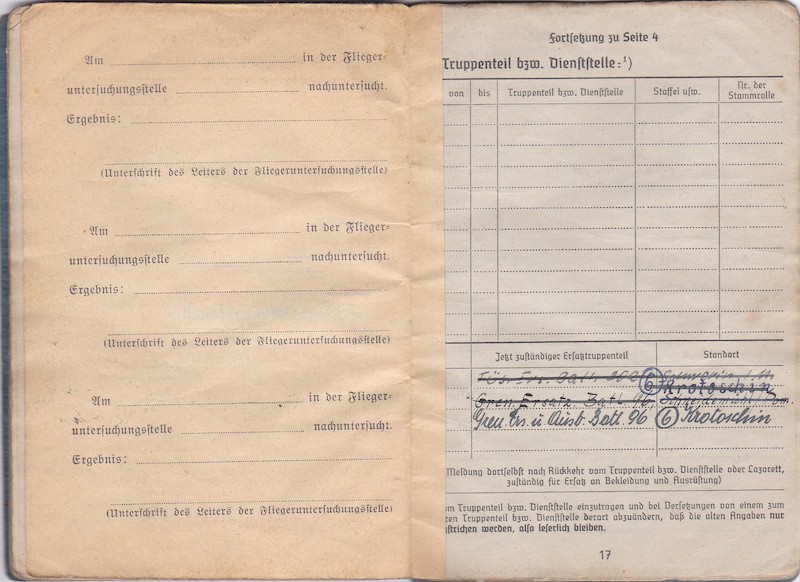 Am in der Flieger-
untersuchungsstelle nachuntersucht.
Ergebnis:
(Unterschrift des Leiters der Fliegeruntersuchungsstelle)
Am in der Flieger-
untersuchungsstelle nachuntersucht.
Ergebnis:
(Unterschrift des Leiters der Fliegeruntersuchungsstelle)
Am in der Flieger-
untersuchungsstelle nachuntersucht.
Ergebnis:
(Unterschrift des Leiters der Fliegeruntersuchungsstelle)
Fortsetzung zu Seite 4
Truppenteil bzw. Dienststelle:¹)
von bis Truppenteil bzw. Dienststelle Staffel usw. Nr. der Stammrolle
Jetzt zuständiger Ersatztruppenteil Standort
Füs. Ers. Batl.
6 Krotoschin
Gren. Ersatz Batl. 96, Schneidemühl/Pom.
Gren. Ers. u. Ausb. Batl. 96 6 Krotoschin
Meldung dortselbst nach Rückkehr vom Truppenteil bzw. Dienststelle oder Lazarett,
zuständig für Ersatz an Bekleidung und Ausrüstung)
m Truppenteil bzw. Dienststelle einzutragen und bei Versetzungen von einem zum
ren Truppenteil bzw. Dienststelle derart abzuändern, daß die alten Angaben nur
strichen werden, also leserlich bleiben.
17